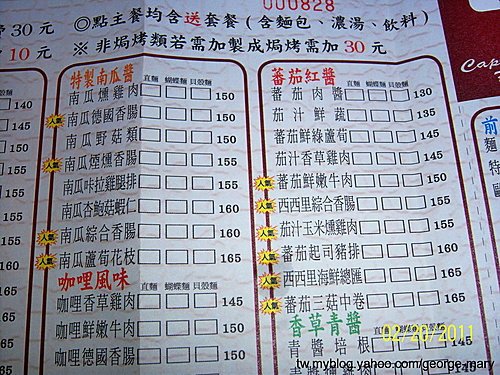 000828
30 元 ◎點主餐均含送套餐 ( 含麵包、濃湯、飲料 )
10 元 ※ 非焗烤類若需加製成焗烤需加 30 元
140
145
155
155
165
165
165
特製南瓜醬 直麵 蝴蝶麵 貝殼麵
南瓜燻雞肉 150
人氣 南瓜德國香腸 150
南瓜野菇類 150
人氣 南瓜煙燻香腸 155
南瓜咔拉雞腿排 155
南瓜杏鮑菇蝦仁 160
人氣 南瓜綜合香腸 160
人氣 南瓜蘆荀花枝 165
咖哩風味 直麵 蝴蝶麵 貝殼麵
咖哩香草雞肉 145
咖哩鮮嫩牛肉 150
咖哩德國香腸 150
蕃茄紅醬 直麵 蝴蝶麵 貝殼麵
蕃茄肉醬 130
茄汁鮮蔬 135
蕃茄鮮綠蘆荀 145
茄汁香草雞肉 145
人氣 蕃茄鮮嫩牛肉 150
人氣 西西里綜合香腸 155
人氣 茄汁玉米燻雞肉 155
人氣 蕃茄起司豬排 160
人氣 西西里海鮮總匯 165
人氣 蕃茄三菇中卷 165
香草青醬 直麵
青醬培根
Cap
前
麵
特
02/20/2011
tw.myblog.yahoo.com/george-mary